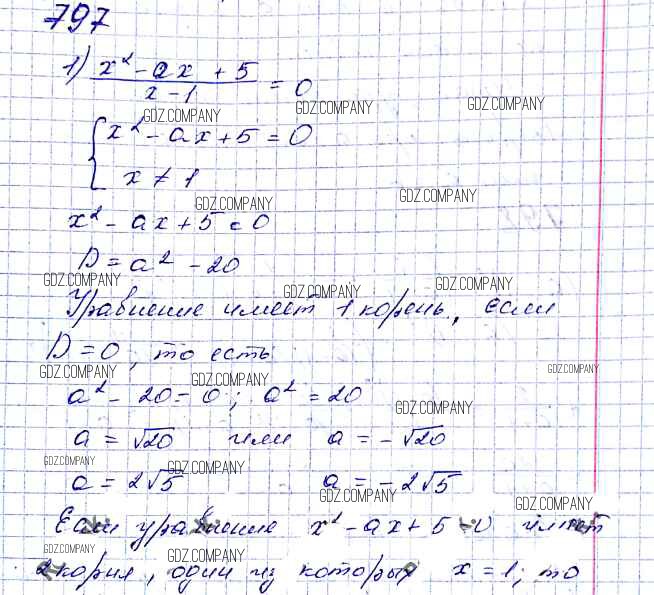 797
1) x² - ax + 5 / x - 1 = 0
GDZ.COMPANY GDZ.COMPANY GDZ.COMPANY
{ x² - ax + 5 = 0
x ≠ 1
GDZ.COMPANY GDZ.COMPANY
x² - ax + 5 = 0
D = a² - 20
GDZ.COMPANY GDZ.COMPANY GDZ.COMPANY
Уравнение имеет 1 корень, если
D = 0, то есть
GDZ.COMPANY GDZ.COMPANY GDZ.COMPANY
a² - 20 = 0; a² = 20
GDZ.COMPANY
a = √20 или a = -√20
GDZ.COMPANY GDZ.COMPANY
a = 2√5 a = -2√5
GDZ.COMPANY GDZ.COMPANY
Если уравнение x² - ax + 5 = 0 имеет
GDZ.COMPANY GDZ.COMPANY
2 корня, один из которых x = 1, то